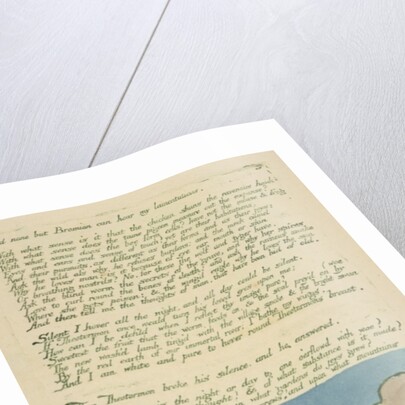 And none but Bromion can hear my lamentations.
With what sense is it that the chicken shuns the ravenous hawk?
With what sense does the tame pigeon measure out the expanse?
With what sense does the bee form cells? have not the mouse & frog
Eyes and ears and sense of touch? yet are their habitations
And their pursuits, as different as their forms and as their joys:
Ask the wild ass why he refuses burdens: and the meek camel
Why he loves man: is it because of eye ear mouth or skin
Or breathing nostrils? No. for these the wolf and tyger have.
Ask the blind worm the secrets of the grave, and why her spires
Love to curl round the bones of death; and ask the rav'nous snake
Where she gets poison: & the wing'd eagle why he loves the sun
And then tell me the thoughts of man, that have been hid of old.
Silent I hover all the night, and all day could be silent,
If Theotormon once would turn his loved eyes upon me;
How can I be defild when I reflect thy image pure?
Sweetest the fruit that the worm feeds on & the soul prey'd on by
The new wash'd lamb ting'd with the village smoke & the bright swan
By the red earth of our immortal river: I bathe my wings.
And I am white and pure to hover round Theotormons breast.
Theotormon broke his silence, and he answered.
is the night or day to one o'erflowd with woe?
thought? & of what substance is it made?
in what gardens do joys grow?
and upon what mountains